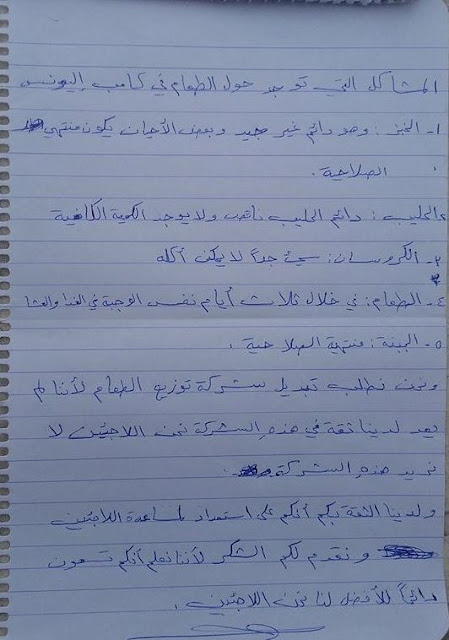 المشاكل التي توجد حول الطعام في كامب اليونس
١- الخبز : وهو دائم غير جيد وبعض الأحيان يكون منتهي
الصلاحية .
٢ الحليب : دائم الحليب ناقص ولا يوجد الكمية الكافية
٣- الكروسان : سيئ جداً لا يمكن أكله
٤- الطعام : في خلال ثلاث أيام نفس الوجبة في الغدا والعشا
٥- البينة : منتهية الصلاحية .
ونحن نطلب تبديل شركة توزيع الطعام لأننا لم
يعد لدينا ثقة في هذه الشركة نحن اللاجئين لا
نريد هذه الشركة .
ولدينا الثقة بكم أنكم على استعداد لمساعدة اللاجئين
ونقدم لكم الشكر لأننا نعلم أنكم تسعون
دائماً للأفضل لنا نحن اللاجئين .